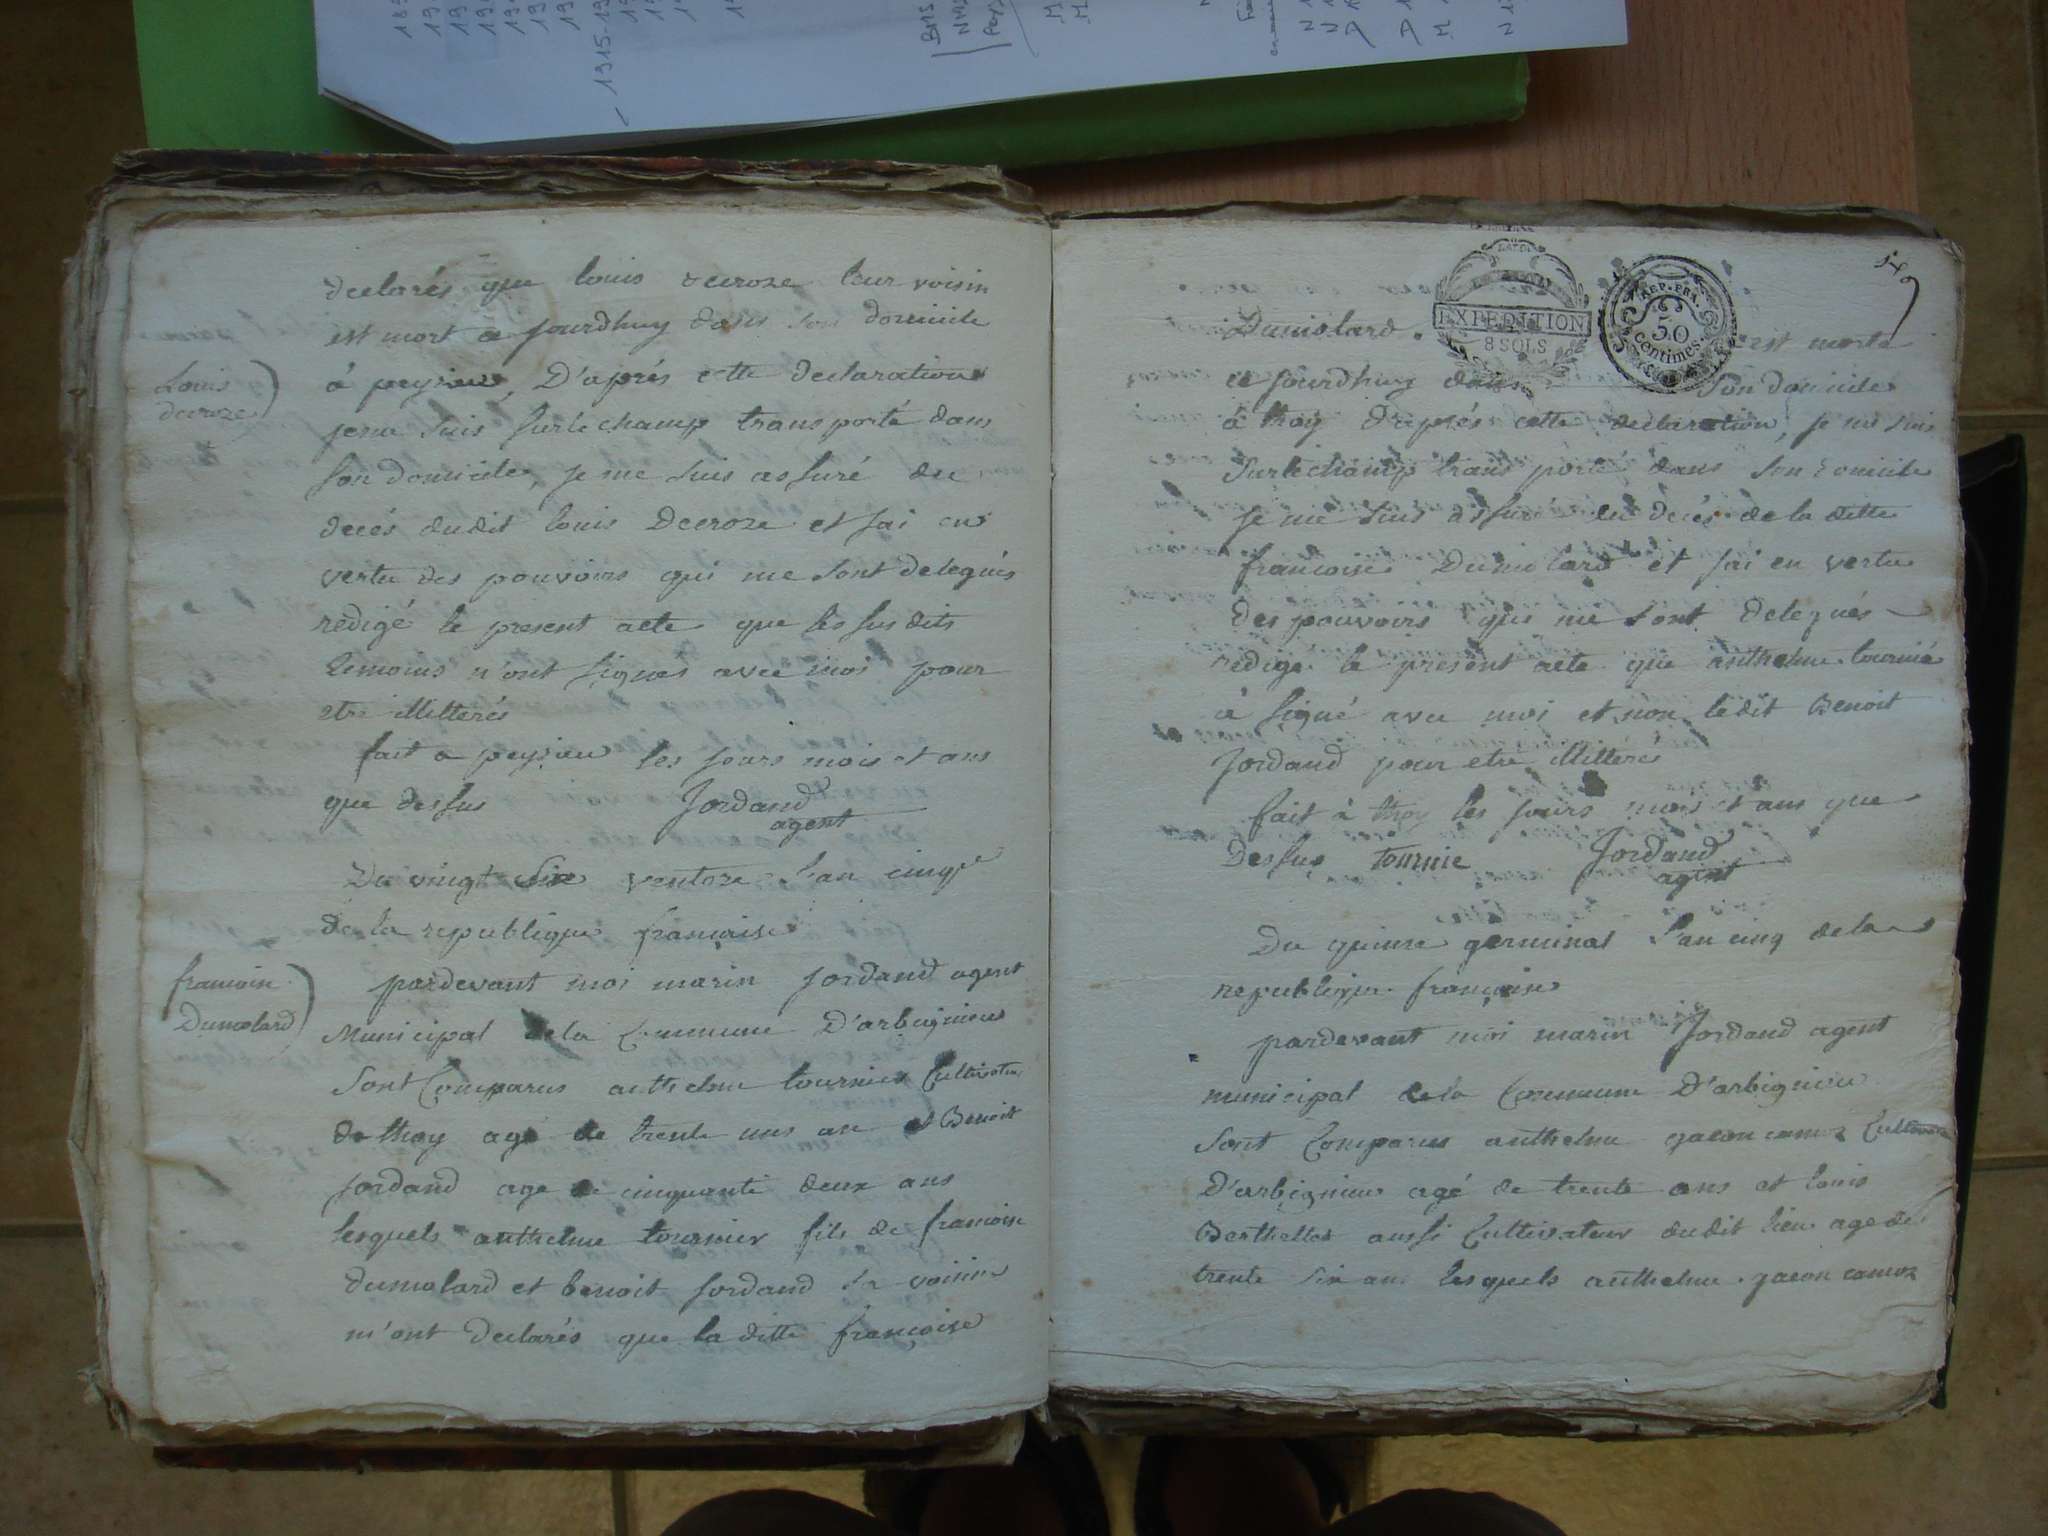 declarés que louis decroze leur voisin
est mort a Jourdhuy dans son domicile
Louis
decroze
à peyzieu, D'aprés cette declaration
je me suis surlechamp transporté dans
son domicile, je me suis assuré du
decés dudit louis Decroze et j'ai en
vertu des pouvoirs qui me sont delegués
redigé le present acte que les susdits
temoins n'ont signés avec moi pour
etre illitterés
fait a peyzieu les jours mois et ans
que dessus Jordand
agent
Du vingt Six ventoze l'an cinq
de la republique francaise
francoise
Dumolard
pardevant moi marin Jordand agent
Municipal de la Commune D'arbignieu
Sont Comparus anthelme tournier Cultivateur
de thoy agé de trente uns an et Benoit
Jordand age de cinquante deux ans
lesquels anthelme tournier fils de francoise
dumolard et benoit Jordand Sa voisin
m'ont Declarés que la ditte francoise
EXPEDITION
8 SOLS
REP. FRA.
50
Centimes
Dumolard. est morte
a Jourdhuy dans Son domicile
à thoy D'aprés cette declaration, je me suis
Surlechamp transporté dans Son domicile
Je me suis assuré du decés de la ditte
francoise Dumolard et j'ai en vertu
Des pouvoirs qui me Sont Delegués
redigé le present acte que anthelme tournié
à signé avec moi et non ledit Benoit
Jordand pour etre illitteré
fait à thoy les jours mois et ans que
Dessus tournie Jordand
agent
Du quinze germinal l'an cinq de la
republique francaise
pardevant moi marin Jordand agent
municipal de la Commune D'arbignieu
Sont Comparus anthelme gacon camoz Cultivateur
D'arbignieu agé de trente ans et louis
Berthellot aussi Cultivateur dudit lieu age de
trente six ans lesquels anthelme gacon camoz
1915-19
BMS
NMD